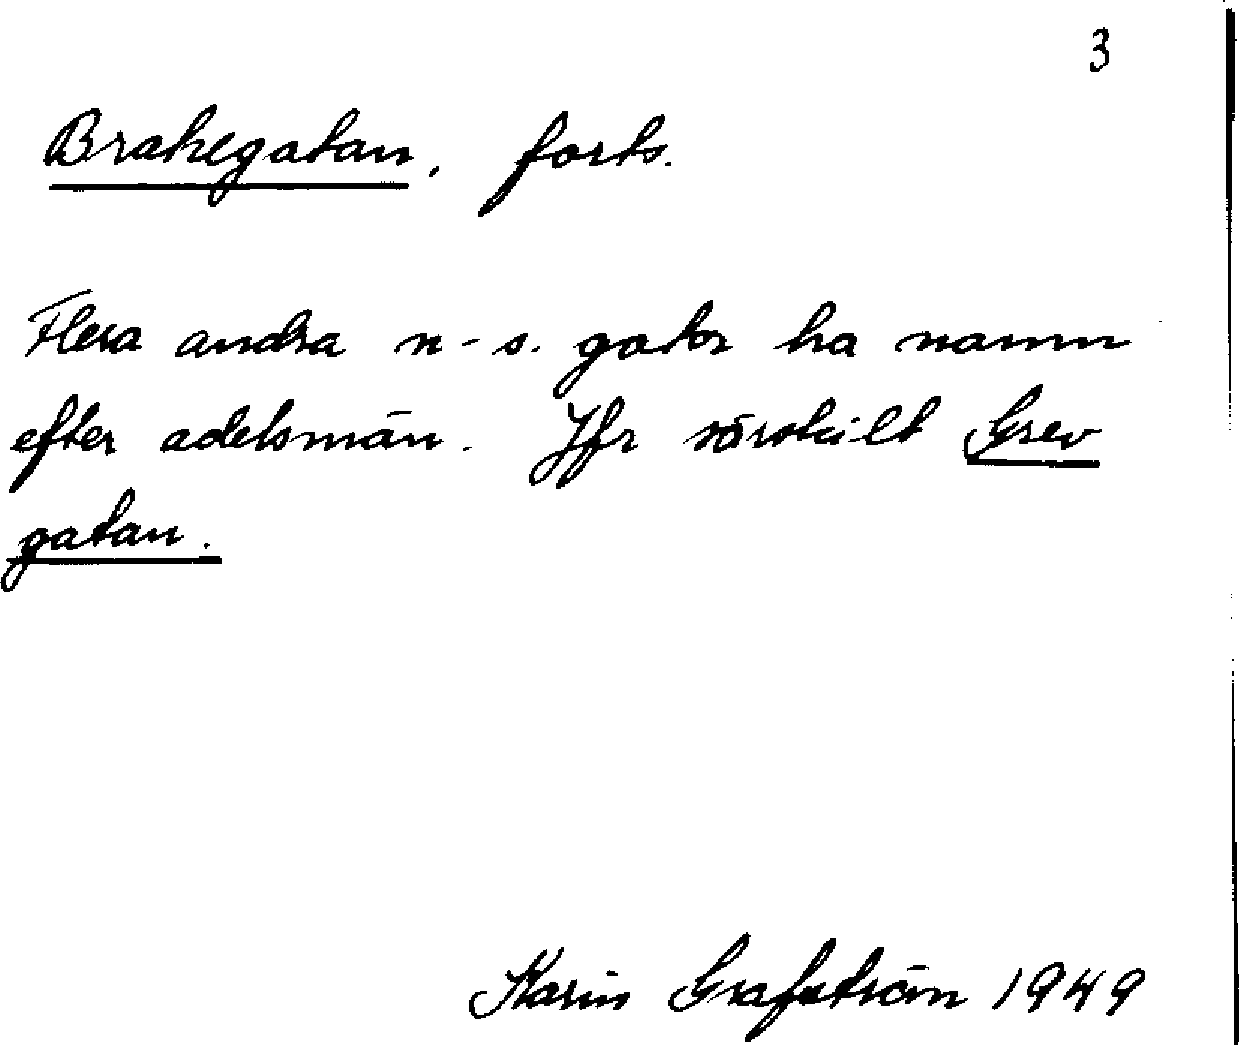 3
Brahegatan, forts.
Flera andra n-s. gator ha namn
efter adelsmän. Jfr särskilt Grev
gatan.
Karin Grafström 1949